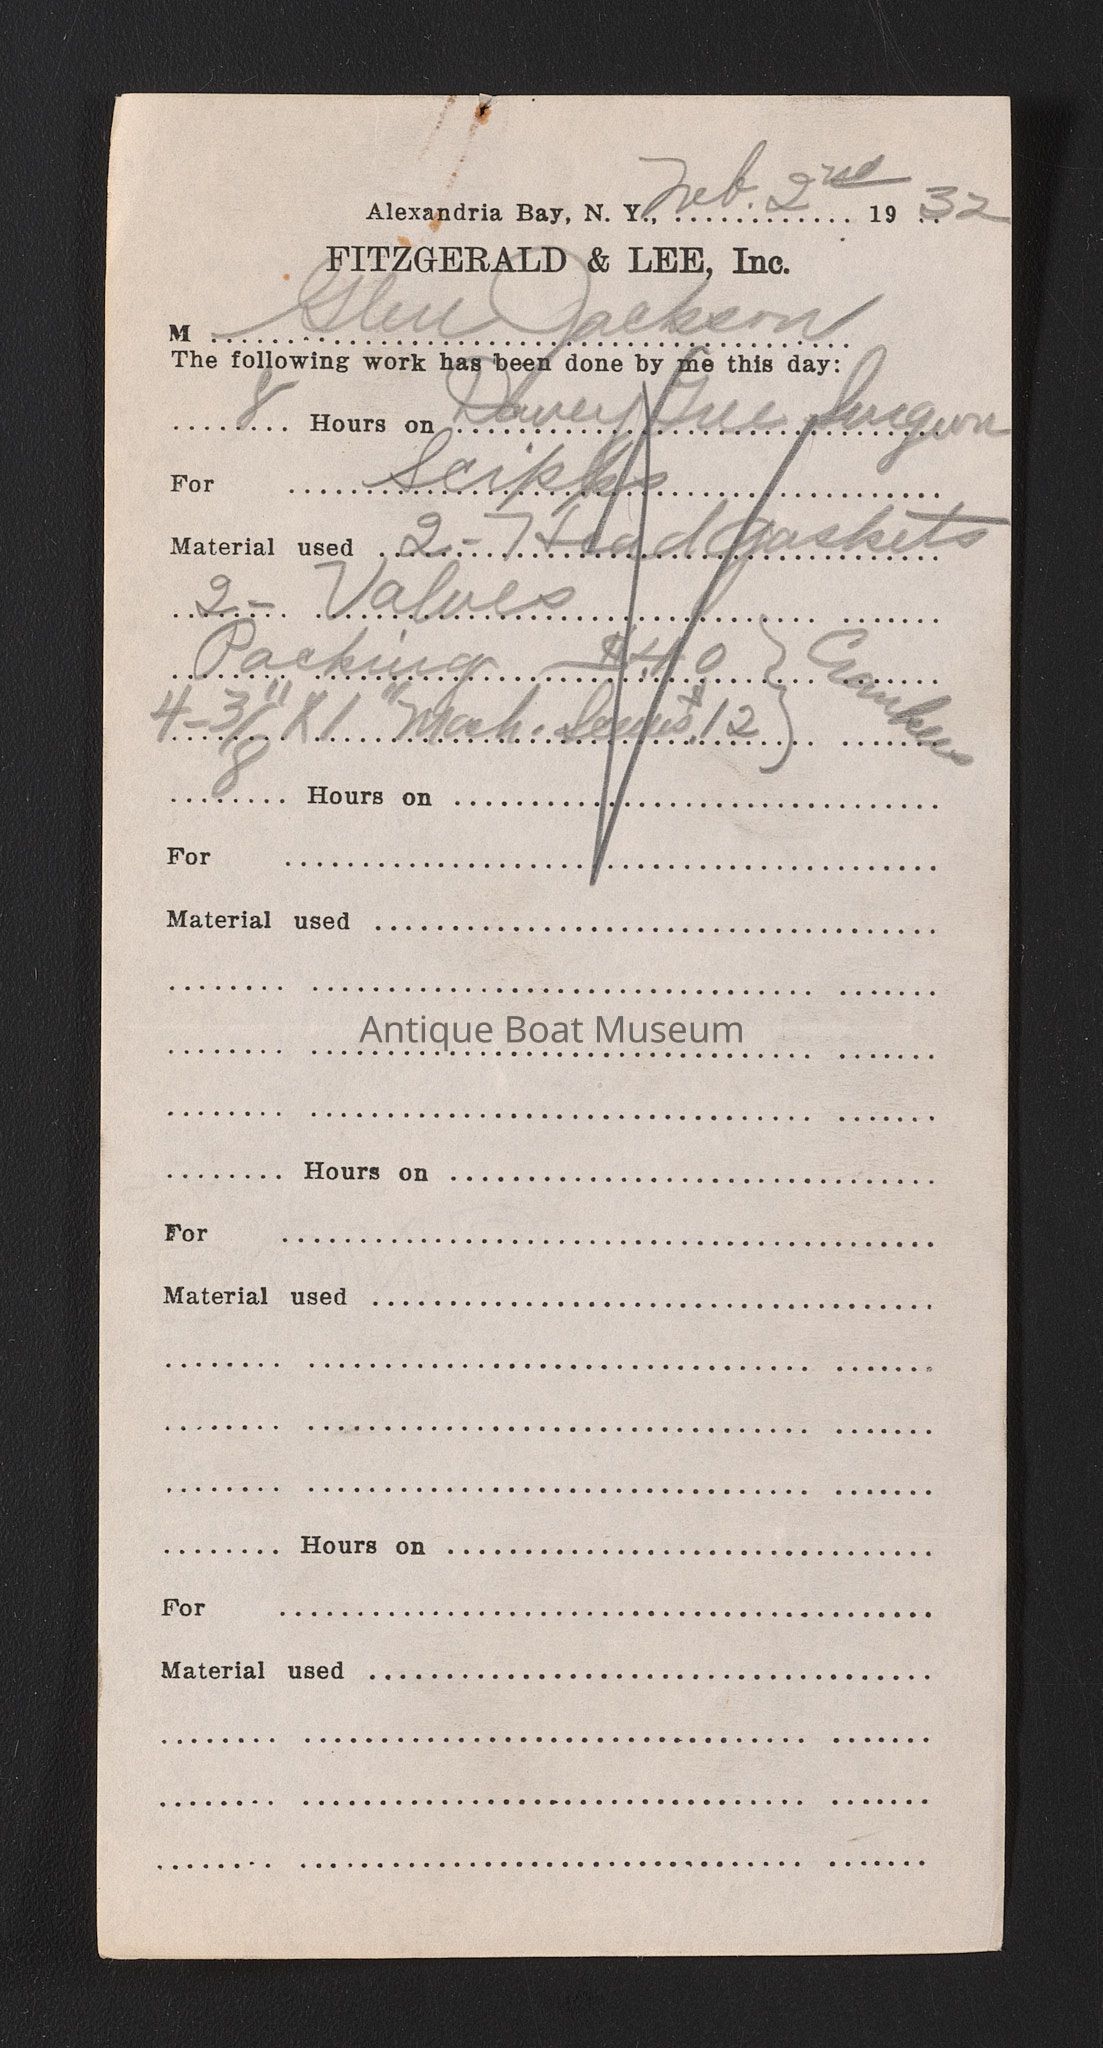 Alexandria Bay, N. Y., Feb. 2nd 19 32
FITZGERALD & LEE, Inc.
M Glen Jackson
The following work has been done by me this day:
8 Hours on Davey Tree Surgeon
For Scripps
Material used 2 - Head gaskets
2 - Valves
Packing $.40
4 - 3/8" X 1" Mach. Screws $.12
Hours on
For
Material used
Antique Boat Museum
Hours on
For
Material used
Hours on
For
Material used